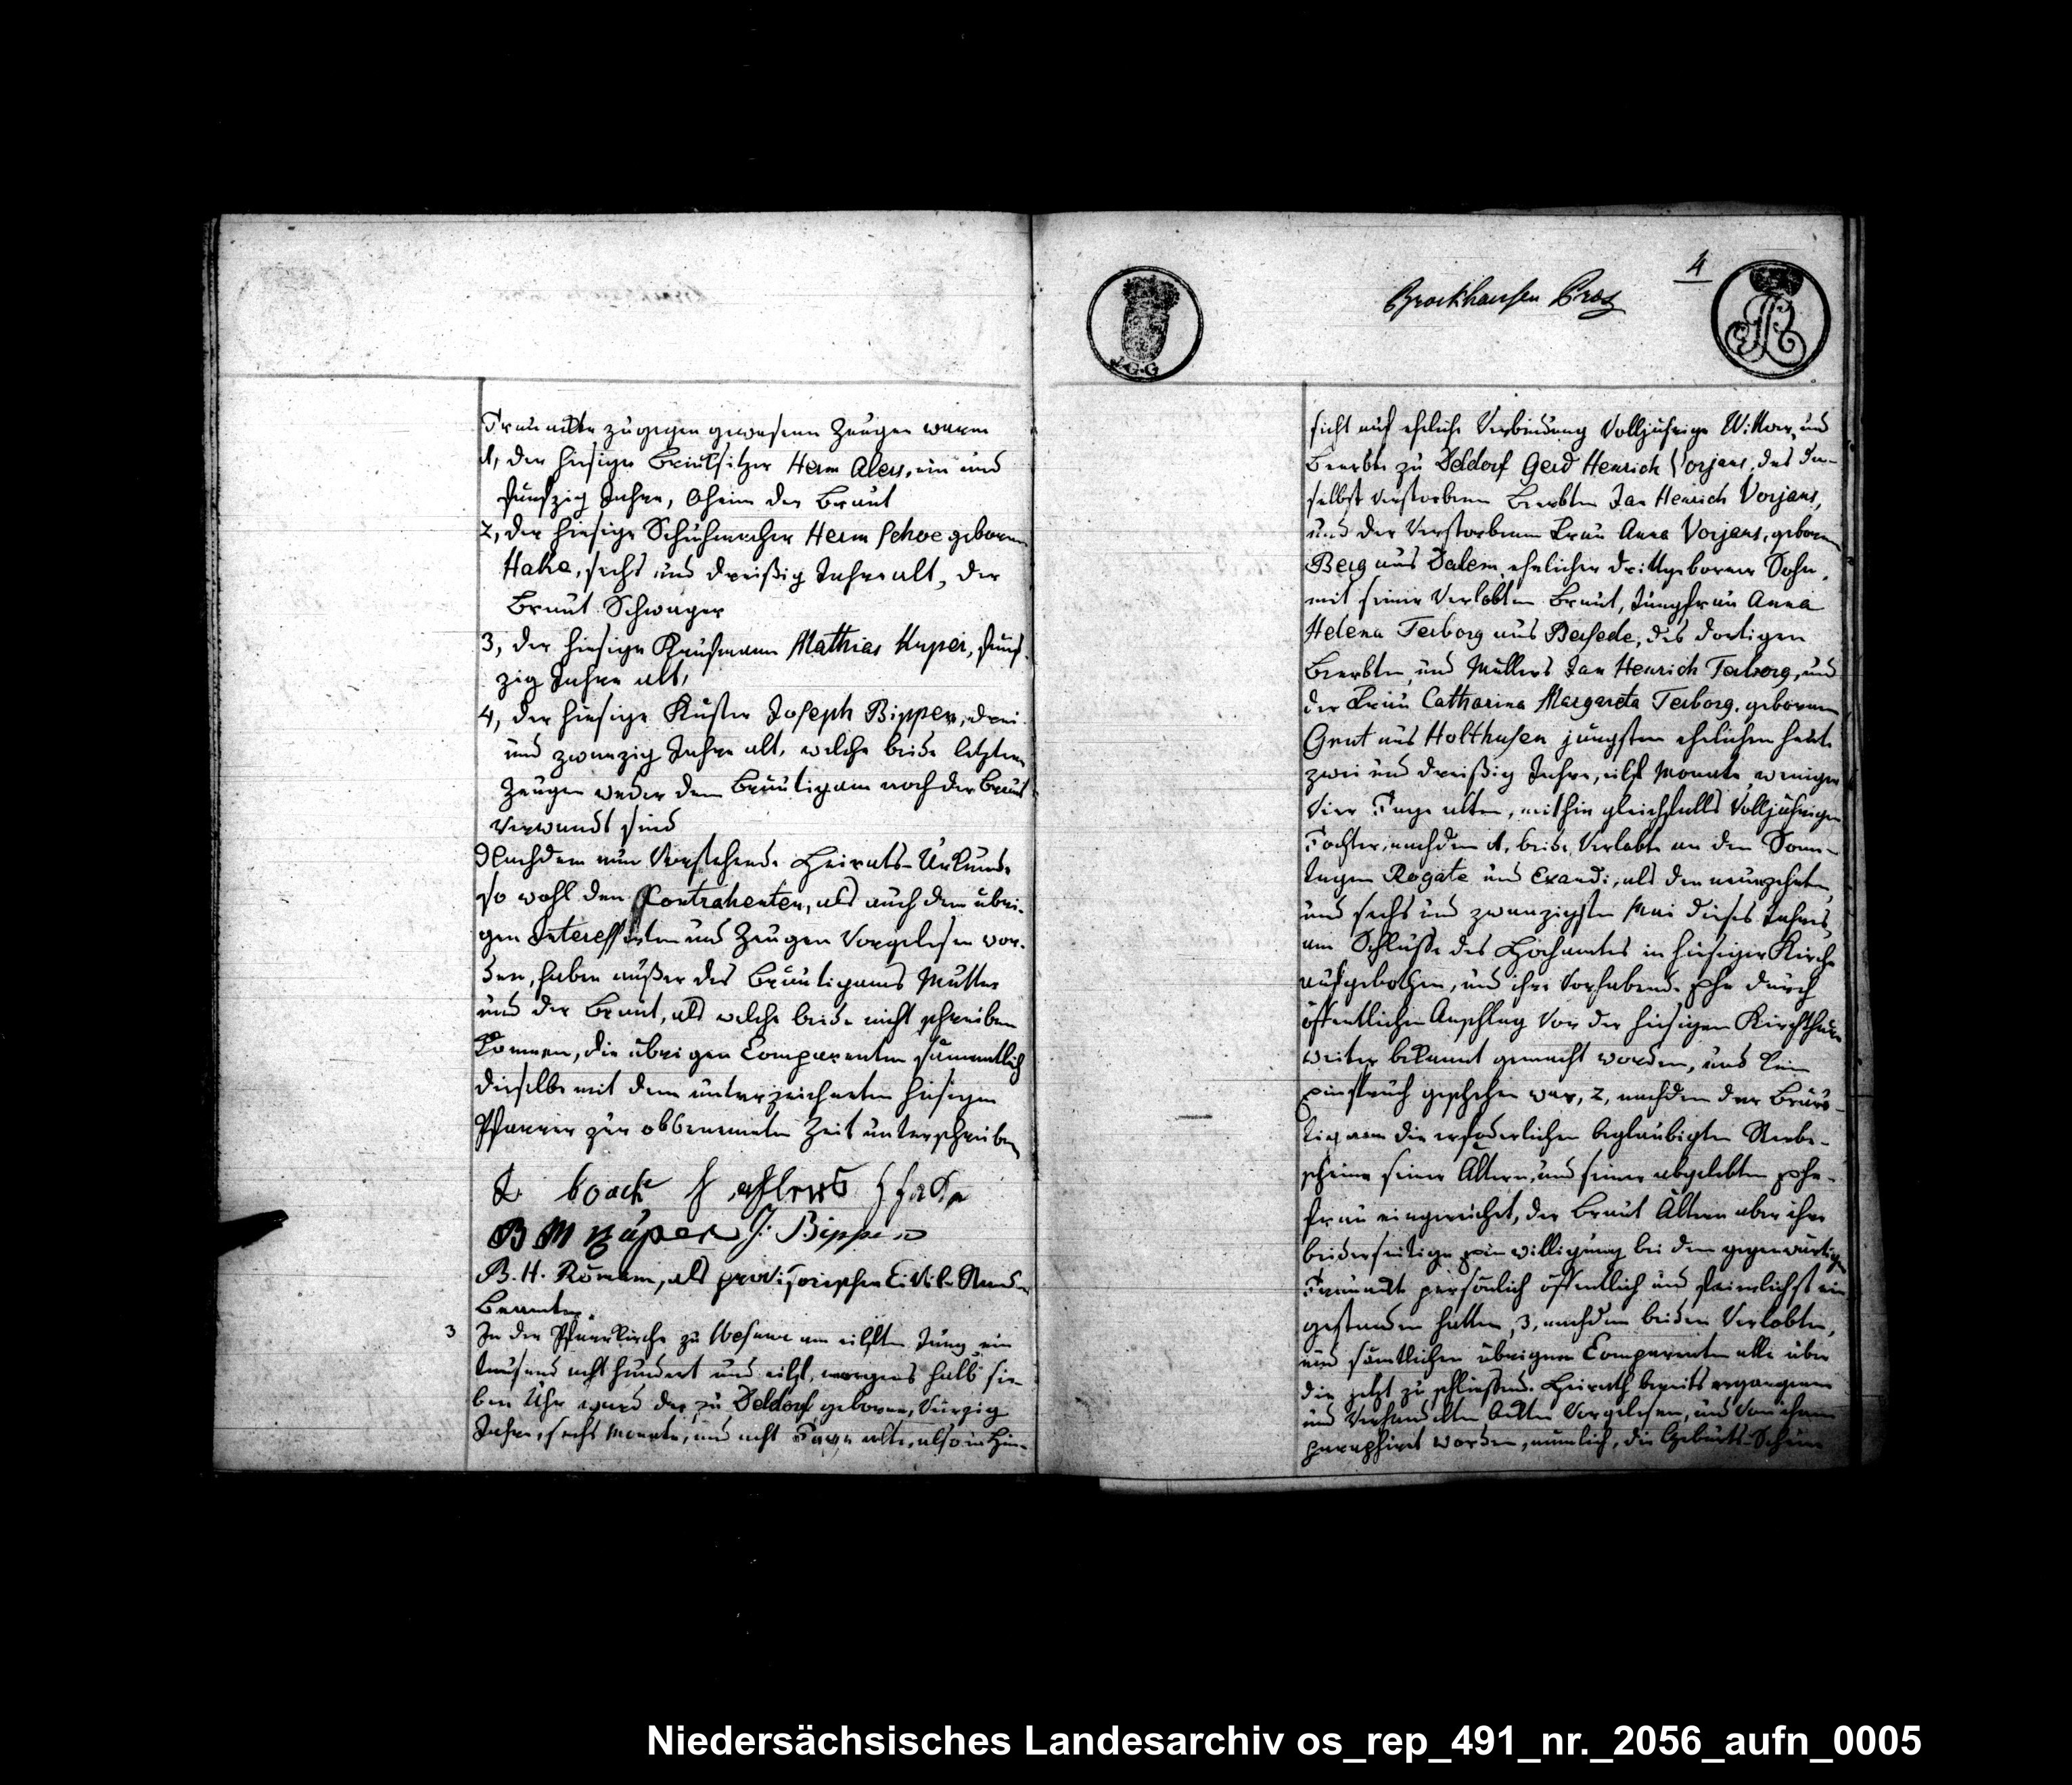 Trauackte zugegen gewesene Zeugen waren
1, der hiesige Beiulsitzer Herm Alers, ein und
funfzig Jahre, Oheim der Braut
2, der hiesige Schuhmacher Herm Schoe geboren
Hake, sechs und dreißig Jahre alt, der
Braut Schwager
3, der hiesige Kaufmann Mathias Kuper, funf-
zig Jahre alt,
4, der hiesige Küster Joseph Bippen, drei
und zwanzig Jahre alt, welche beide letztere
Zeugen weder dem Bräutigam noch der Braut
verwandt sind
Nachdem nun Vorstehende Heirats-Urkunde
so wohl den Contrahenten, als auch den übri-
gen Interessenten und Zeugen Vorgelesen wor-
den, haben außer des Bräutigams Mutter
und der Braut, als welche beide nicht schreiben
können, die übrigen Comparenten sämmtlich
dieselbe mit dem unterzeichneten hiesigen
Pfarrer zur obbenennten Zeit unterschrieben
B M Küper J: Bippen
B. H. als provisorischer Civil-Stands
Beamter.
3 In der Pfarrkirche zu Wesuwe am eilften Juny ein
tausend acht hundert und eilf, morgens halb sie-
ben Uhr ward der zu Deldorf geborne, Vierzig
Jahre, sechs Monate, und acht Tage alte, also in Hin-
4
Brockhausen
J.G.G
sicht auf eheliche Verbindung Volljährige Wittwer, und
Beerbte zu Deldorf Gerd Henrich Vorjans, des da-
selbst verstorbenen Beerbten Jan Henrich Vorjans,
und der Verstorbenen Frau Anna Vorjans, geboren
Berg aus Dalem, ehelicher drittgeborner Sohn,
mit seiner Verlobten Braut, Jungfrau Anna
Helena Terborg aus Versede, des dortigen
Beerbten, und Müllers Jan Henrich Terborg, und
der Frau Catharina Margareta Terborg, geboren
Grut aus Holthusen jüngsten ehelichen heute
zwei und dreißig Jahre, eilf Monate weniger
vier Tage alten, mithin gleichfalls Volljährigen
Tochter, nachdem 1, beide Verlobte an den Sonn-
tagen Rogate und Exaudi, als den neunzehnten,
und sechs und zwanzigsten Mai dieses Jahres
am Schlusse des Hochamtes in hiesiger Kirche
aufgebothen, und ihre Vorhabende Ehe durch
öffentlichen Anschlag Vor der hiesigen Kirchthüre
weiter bekannt gemacht worden, und kein
Einspruch geschehen war, 2, nachdem der Bräu-
tigam die erfoderlichen beglaubigten Sterbe-
scheine seiner Ältern, und seiner abgelebten Ehe-
frau eingereichet, der Braut Ältern aber ihre
beiderseitige Einwilligung bei dem gegenwärtigen
Trauackt persönlich öffentlich und feierlichst ein
gestanden hatten, 3, nachdem beiden Verlobten,
und sämtlichen übrigen Comparenten alle über
die jetzt zu schließende Heirath bereits ergangenen
und Verhandelten Ackten Vorgelesen, und von ihnen
paraphirt worden, nämlich, die Geburts-Scheine
Niedersächsisches Landesarchiv os_rep_491_nr._2056_aufn_0005